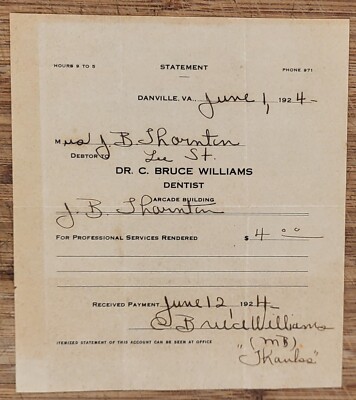 HOURS 9 TO 5 STATEMENT PHONE 971
DANVILLE, VA., June 1, 1924
Mrs J. B. Thornton
DEBTOR TO Lee St.
DR. C. BRUCE WILLIAMS
DENTIST
ARCADE BUILDING
J. B. Thornton
FOR PROFESSIONAL SERVICES RENDERED $ 4 00
RECEIVED PAYMENT June 12 1924
C Bruce Williams
ITEMIZED STATEMENT OF THIS ACCOUNT CAN BE SEEN AT OFFICE
"Thanks"